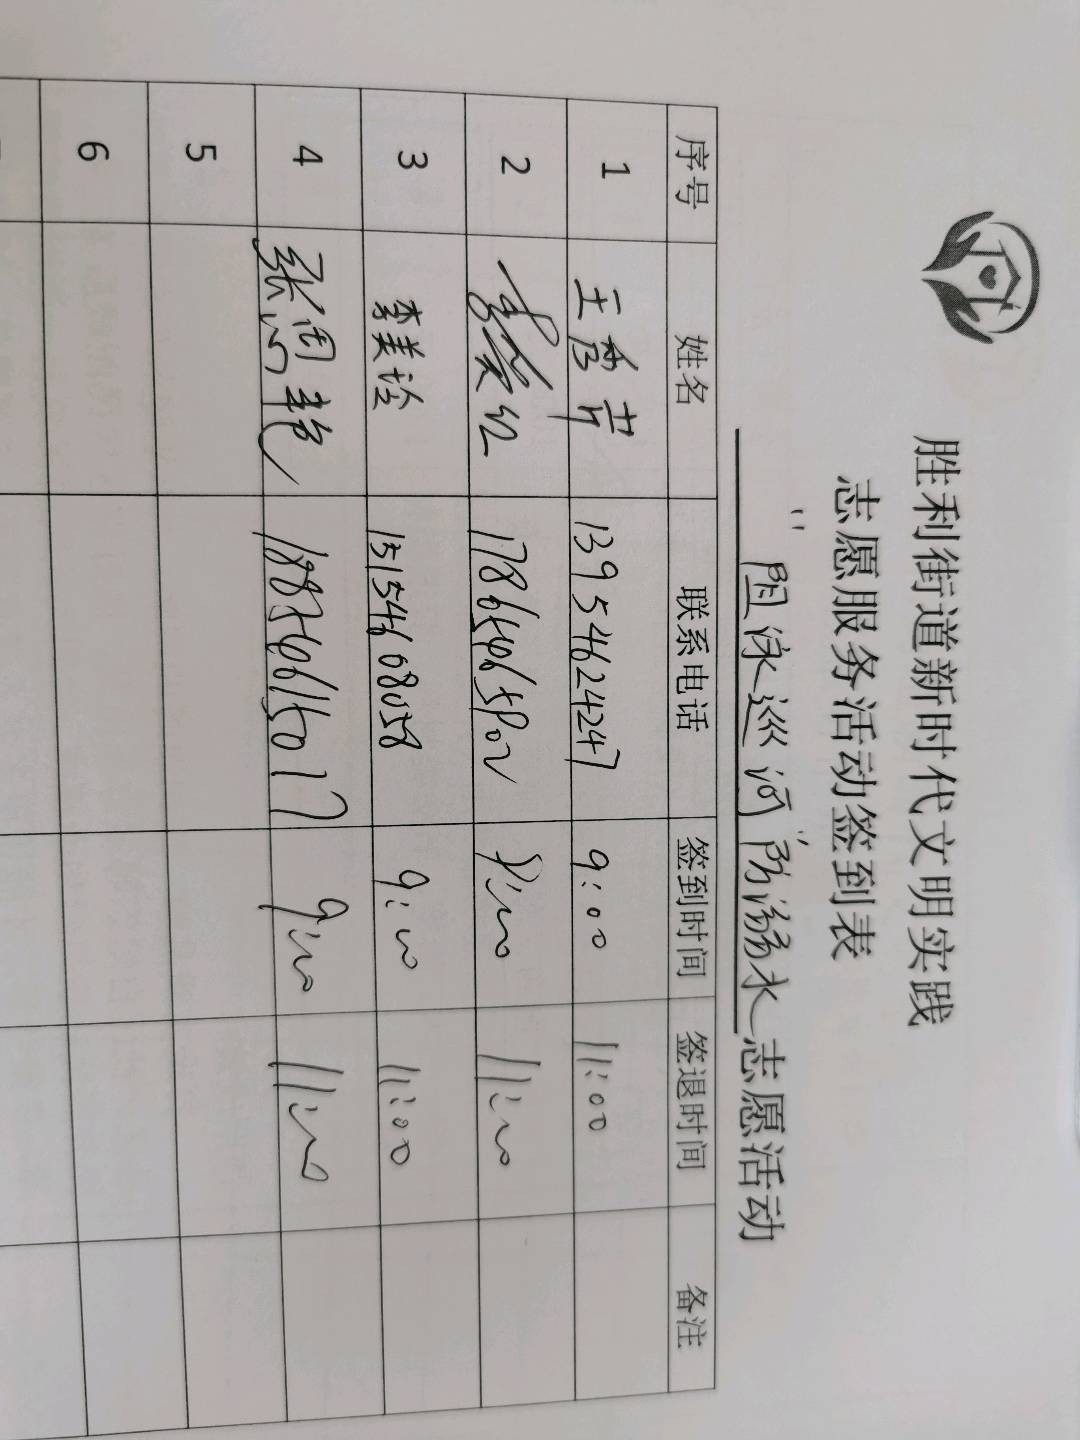 胜利街道新时代文明实践
志愿服务活动签到表
“阻泳巡河”防溺水志愿活动
序号 姓名 联系电话 签到时间 签退时间 备注
1 王秀芹 13954624247 9:00 11:00
2 9:00 11:00
3 李美玲 15154608058 9:00 11:00
4 张周艳 9:00 11:00
5
6